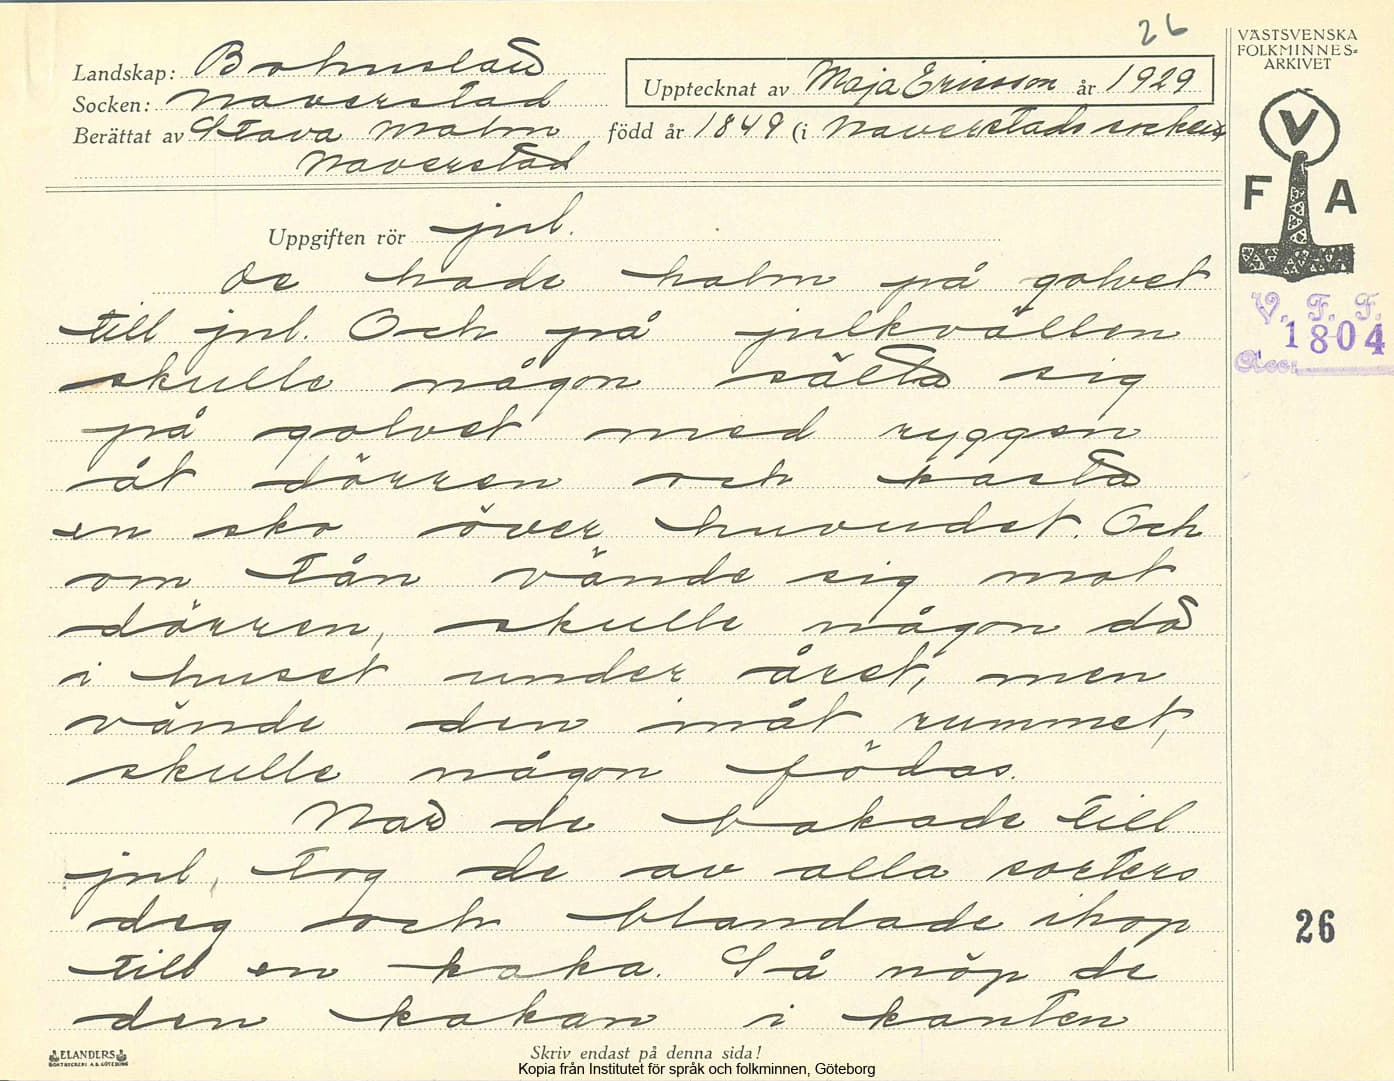 26
VÄSTSVENSKA
FOLKMINNES-
ARKIVET
Landskap: Bohuslän
Upptecknat av Maja Ericsson år 1929
Socken: Naverstad
Berättat av Stava Malm född år 1849 (i Naverstads socken
Naverstad
V
F A
Uppgiften rör jul.
De hade halm på golvet
till jul. Och på julkvällen
skulle någon sätta sig
på golvet med ryggen
åt dörren och kasta
en sko över huvudet. Och
om tån vände sig mot
dörren, skulle någon dö
i huset under året, men
vände den inåt rummet,
skulle någon födas.
När de bakade till
jul, tog de av alla sorters
deg och blandade ihop
till en kaka. Så nöp de
den kakan i kanten
V. F. F.
1804
Acc:
26
ELANDERS
BOKTRYCKERI A.B. GÖTEBORG
Skriv endast på denna sida!
Kopia från Institutet för språk och folkminnen, Göteborg